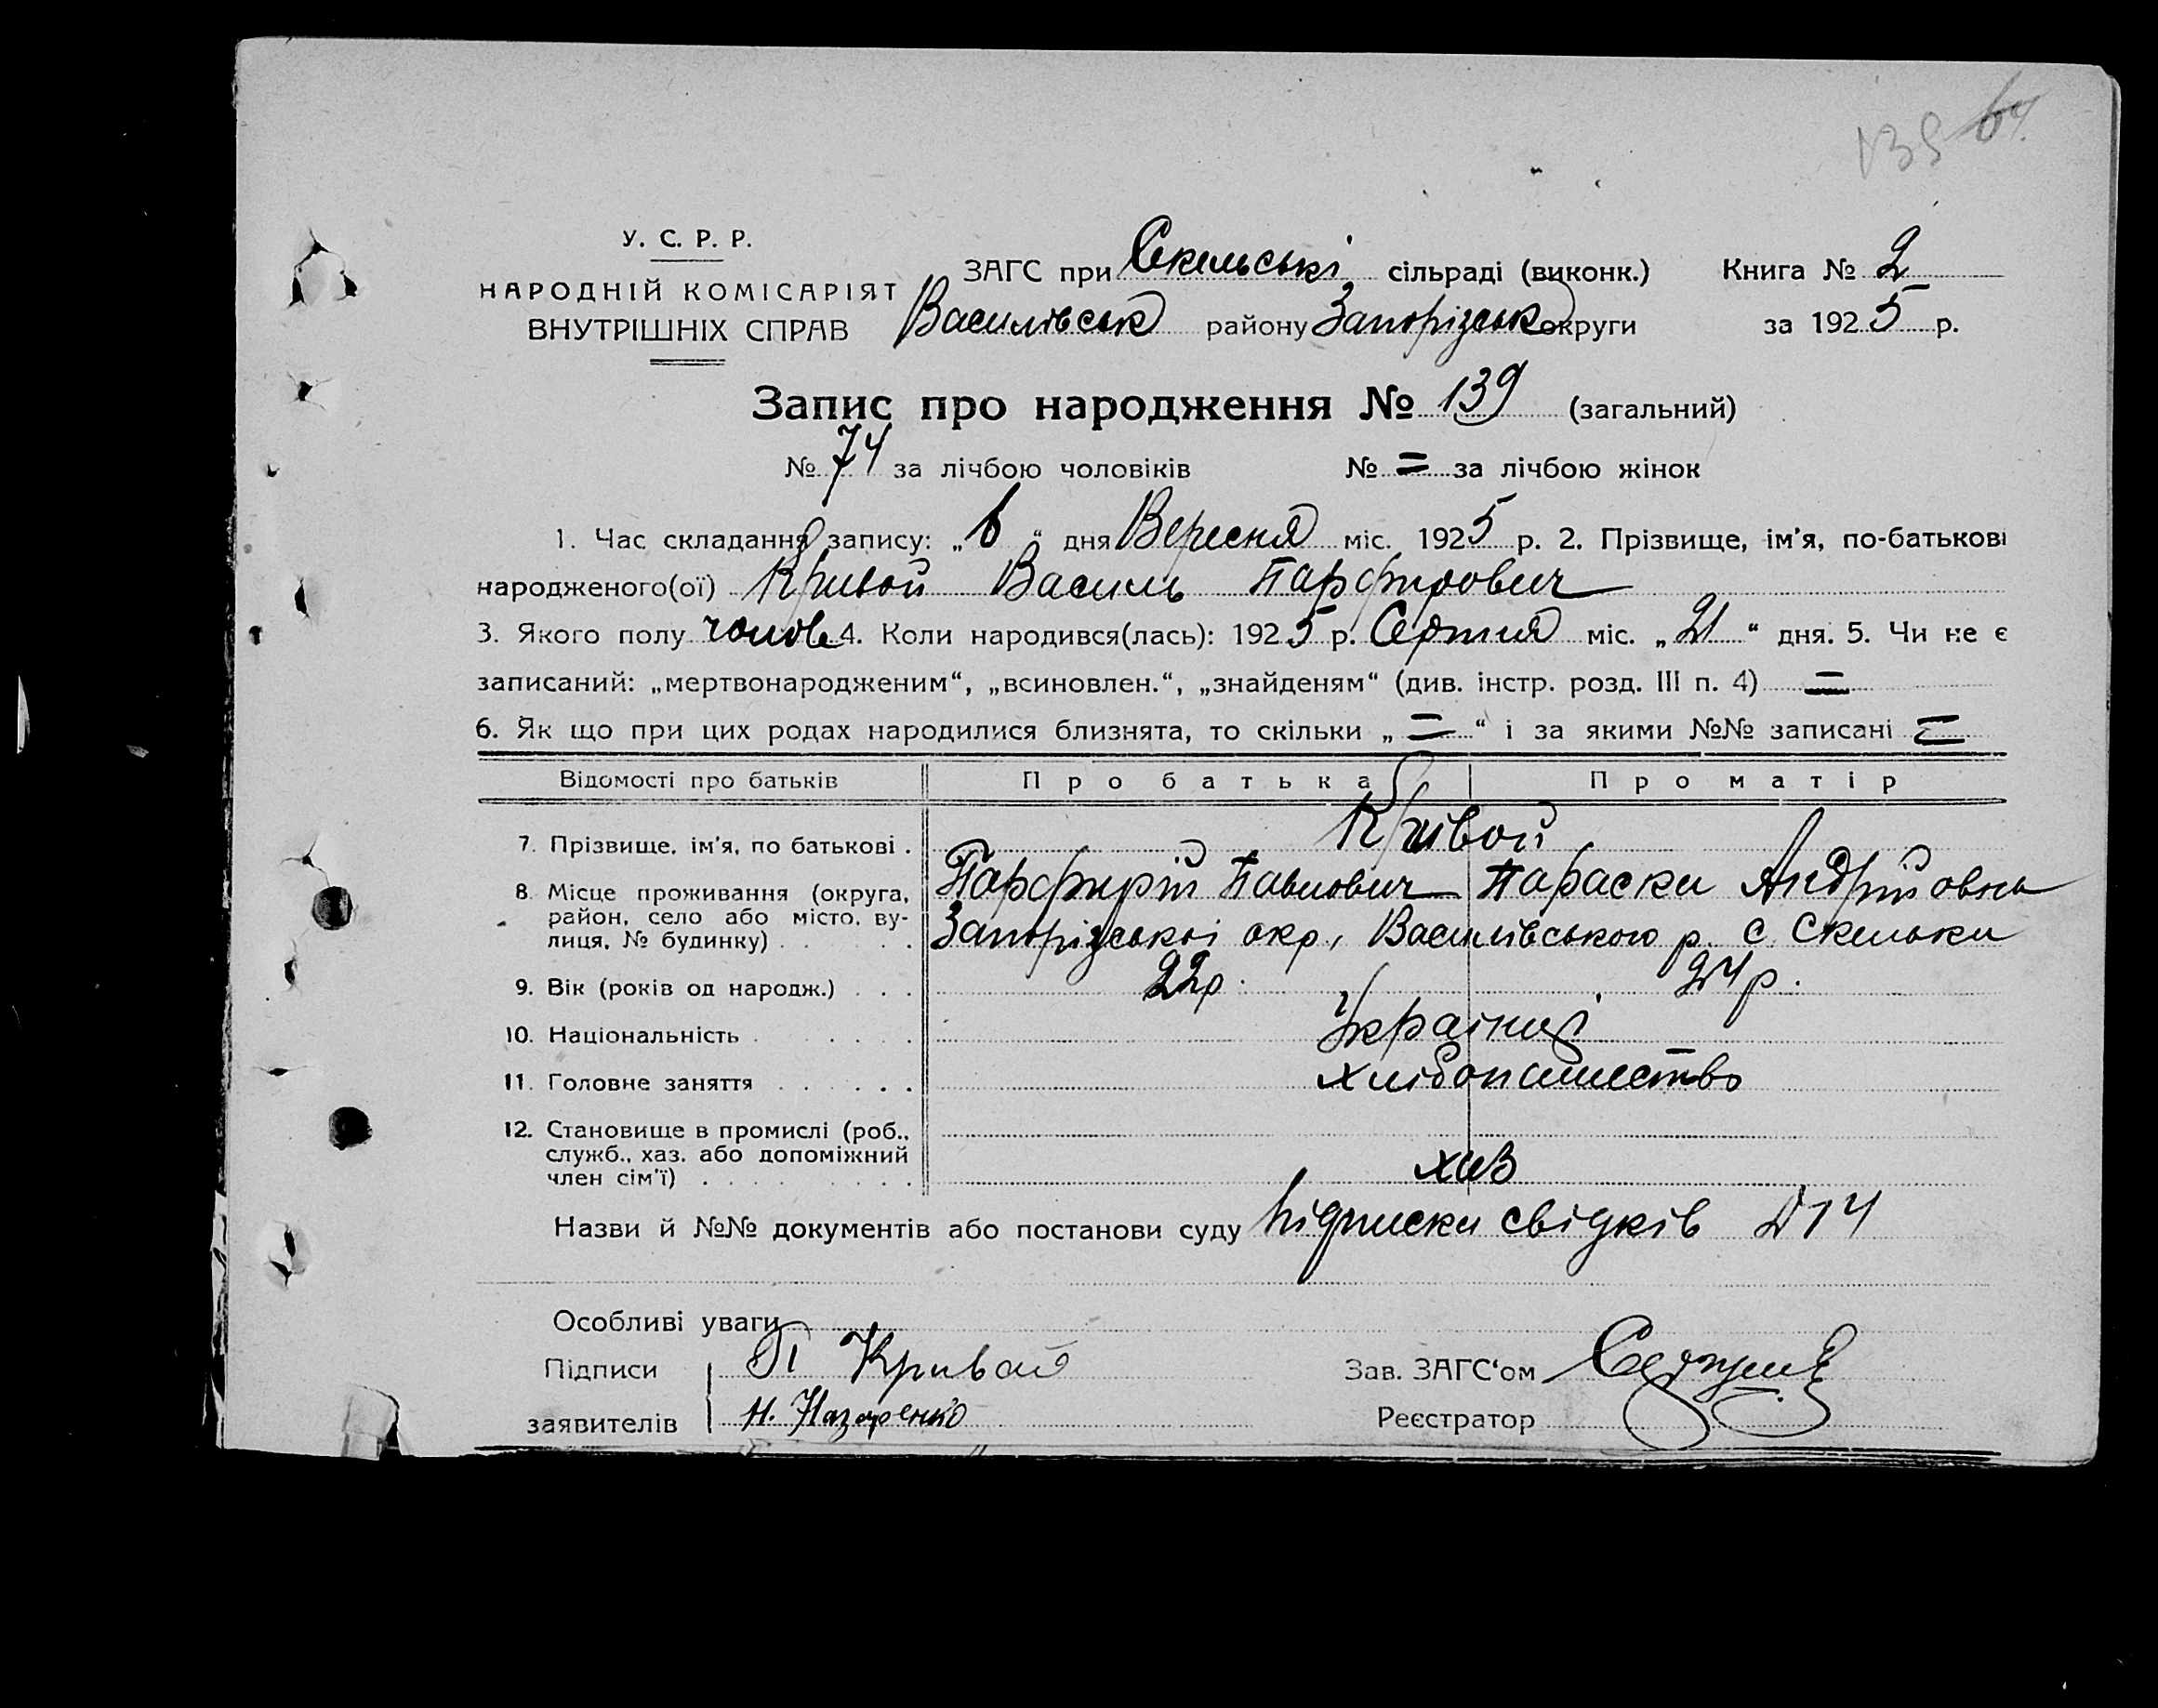 139 64.
У. С. Р. Р.
НАРОДНІЙ КОМІСАРІЯТ
ВНУТРІШНІХ СПРАВ
ЗАГС при Скельські сільраді (виконк.) Книга № 2
Василівськ району Запорізськ округи за 1925 р.
Запис про народження № 139 (загальний)
№ 74 за лічбою чоловіків № = за лічбою жінок
1. Час складання запису: „6“ дня Вересня міс. 1925 р. 2. Прізвище, ім'я, по-батькові
народженого(ої) Кривой Василь Парфирович
3. Якого полу чолов 4. Коли народився(лась): 1925 р. Серпня міс. „21“ дня. 5. Чи не є
записаний: „мертвонародженим“, „всиновлен.“, „знайденям“ (див. інстр. розд. III п. 4) =
6. Як що при цих родах народилися близнята, то скільки „=“ і за якими №№ записані =
Відомості про батьків Про батька Про матір
7. Прізвище, ім'я, по батькові . Кривой
Парфирій Павлович Параски Андрійовна
8. Місце проживання (округа,
район, село або місто, ву-
лиця, № будинку) . . . . Запорізської окр., Василівського р. с. Скельки
9. Вік (років од народж.) . . . 22р. 24р.
10. Національність . . . . . . Українці
11. Головне заняття . . . . . хлібопашество
12. Становище в промислі (роб.,
служб., хаз. або допоміжний
член сім'ї) . . . . . . . . . хаз
Назви й №№ документів або постанови суду Підписки свідків
Особливі уваги
Підписи П Кривой Зав. ЗАГС'ом
заявителів Н. Назаренко Реєстратор